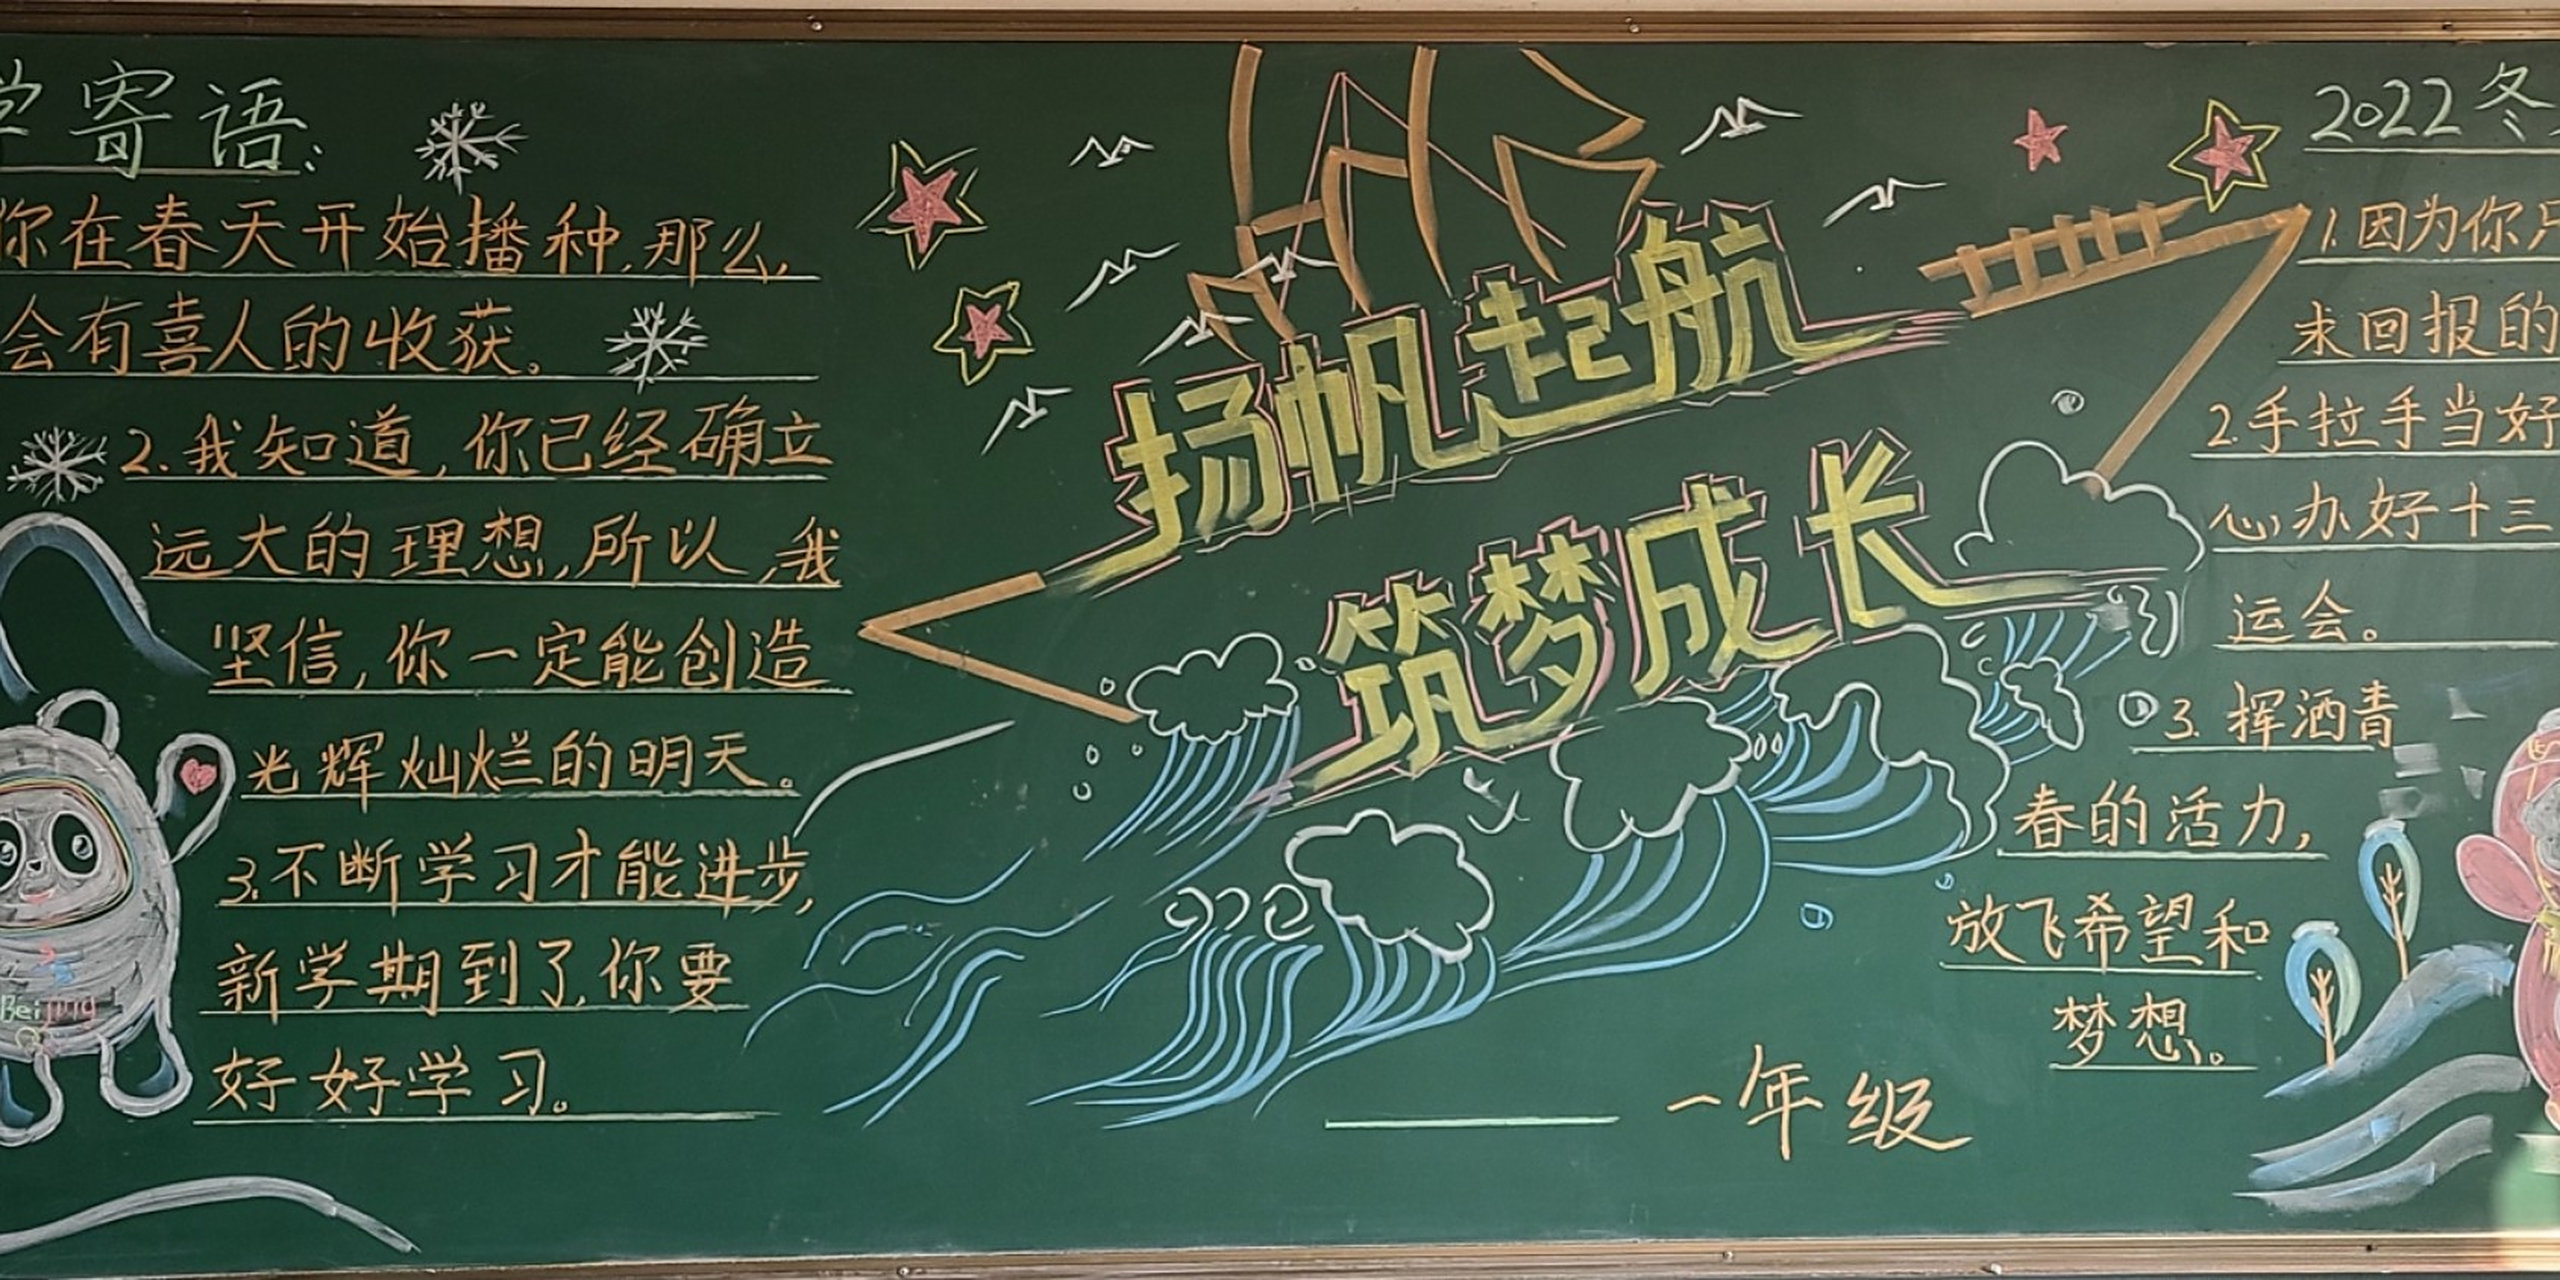 学寄语:
你在春天开始播种,那么,
会有喜人的收获。
2.我知道,你已经确立
远大的理想,所以,我
坚信,你一定能创造
光辉灿烂的明天。
3.不断学习才能进步,
新学期到了,你要
好好学习。
Beijing
扬帆起航
筑梦成长
一年级
2022冬
1.因为你
求回报的
2.手拉手当好
心办好十三
运会。
3.挥洒青
春的活力,
放飞希望和
梦想。